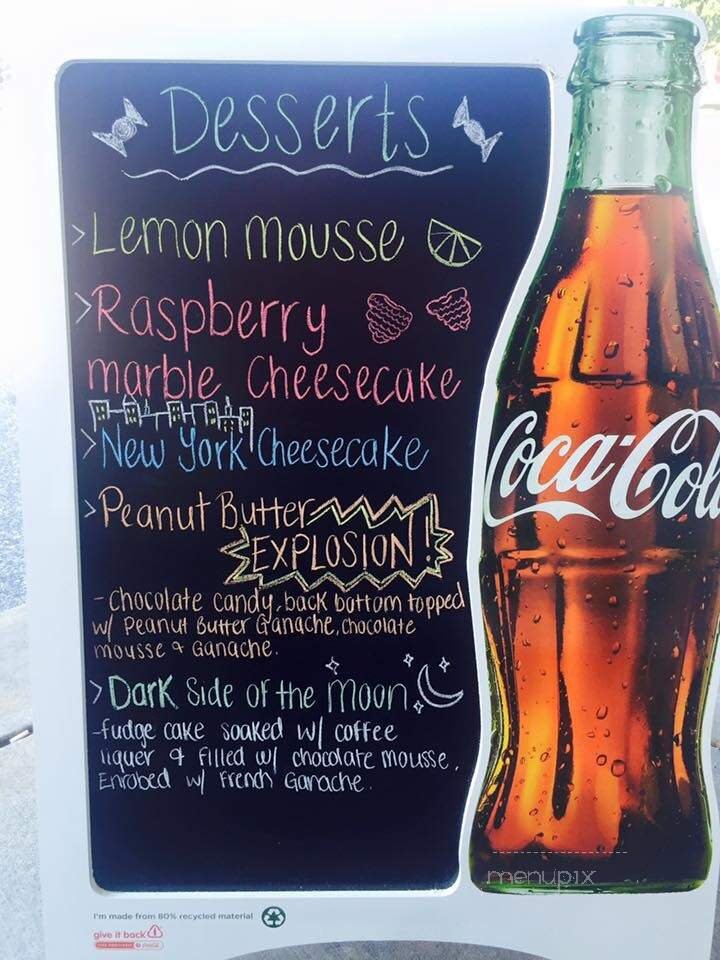 Desserts
>Lemon mousse
>Raspberry
marble Cheesecake
>New York Cheesecake
>Peanut Butter
EXPLOSION!
-Chocolate candy, back bottom topped
w/ Peanut Butter Ganache, chocolate
mousse & Ganache.
>Dark Side of the Moon
-fudge cake soaked w/ coffee
liquer & Filled w/ chocolate mousse.
Enrobed w/ French Ganache.
Coca-Col
menupix
I'm made from 80% recycled material
give it back